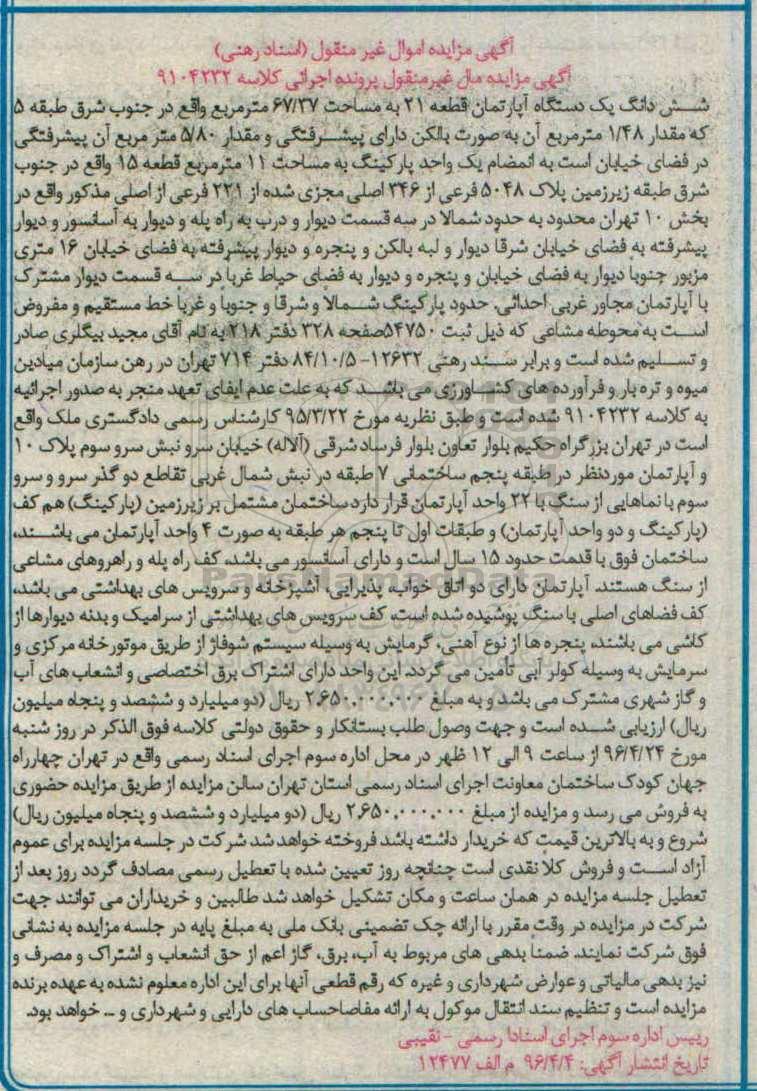 آگهی مزایده اموال غیر منقول (اسناد رهنی)
آگهی مزایده مال غیرمنقول پرونده اجرائی کلاسه ۹۱۰۴۲۳۲
شش دانگ یک دستگاه آپارتمان قطعه ۲۱ به مساحت ۶۷/۳۷ مترمربع واقع در جنوب شرق طبقه ۵
که مقدار ۱/۴۸ مترمربع آن به صورت بالکن دارای پیشرفتگی و مقدار ۵/۸۰ متر مربع آن پیشرفتگی
در فضای خیابان است به انضمام یک واحد پارکینگ به مساحت ۱۱ مترمربع قطعه ۱۵ واقع در جنوب
شرق طبقه زیرزمین پلاک ۵۰۴۸ فرعی از ۳۴۶ اصلی مجزی شده از ۲۲۱ فرعی از اصلی مذکور واقع در
بخش ۱۰ تهران محدود به حدود شمالا در سه قسمت دیوار و درب به راه پله و دیوار به آسانسور و دیوار
پیشرفته به فضای خیابان شرقا دیوار و لبه بالکن و پنجره و دیوار پیشرفته به فضای خیابان ۱۶ متری
مزبور جنوبا دیوار به فضای خیابان و پنجره و دیوار به فضای حیاط غربا در سه قسمت دیوار مشترک
با آپارتمان مجاور غربی احداثی. حدود پارکینگ شمالا و شرقا و جنوبا و غربا خط مستقیم و مفروض
است به محوطه مشاعی که ذیل ثبت ۵۴۷۵۰صفحه ۳۲۸ دفتر ۲۱۸ به نام آقای مجید بیگلری صادر
و تسلیم شده است و برابر سند رهنی ۱۲۶۳۲- ۸۴/۱۰/۵ دفتر ۷۱۴ تهران در رهن سازمان میادین
میوه و تره بار و فرآورده های کشاورزی می باشد که به علت عدم ایفای تعهد منجر به صدور اجرائیه
به کلاسه ۹۱۰۴۲۳۲ شده است و طبق نظریه مورخ ۹۵/۳/۲۲ کارشناس رسمی دادگستری ملک واقع
است در تهران بزرگراه حکیم بلوار تعاون بلوار فرساد شرقی (آلاله) خیابان سرو نبش سرو سوم پلاک ۱۰
و آپارتمان موردنظر در طبقه پنجم ساختمانی ۷ طبقه در نبش شمال غربی تقاطع دو گذر سرو و سرو
سوم با نماهایی از سنگ با ۲۲ واحد آپارتمان قرار دارد ساختمان مشتمل بر زیرزمین (پارکینگ) هم کف
(پارکینگ و دو واحد آپارتمان) و طبقات اول تا پنجم هر طبقه به صورت ۴ واحد آپارتمان می باشند،
ساختمان فوق با قدمت حدود ۱۵ سال است و دارای آسانسور می باشد، کف راه پله و راهروهای مشاعی
از سنگ هستند. آپارتمان دارای دو اتاق خواب، پذیرایی، آشپزخانه و سرویس های بهداشتی می باشد،
کف فضاهای اصلی با سنگ پوشیده شده است، کف سرویس های بهداشتی از سرامیک و بدنه دیوارها از
کاشی می باشند، پنجره ها از نوع آهنی، گرمایش به وسیله سیستم شوفاژ از طریق موتورخانه مرکزی و
سرمایش به وسیله کولر آبی تأمین می گردد. این واحد دارای اشتراک برق اختصاصی و انشعاب های آب
و گاز شهری مشترک می باشد و به مبلغ ۲،۶۵۰،۰۰۰،۰۰۰ ریال (دو میلیارد و ششصد و پنجاه میلیون
ریال) ارزیابی شده است و جهت وصول طلب بستانکار و حقوق دولتی کلاسه فوق الذکر در روز شنبه
مورخ ۹۶/۴/۲۴ از ساعت ۹ الی ۱۲ ظهر در محل اداره سوم اجرای اسناد رسمی واقع در تهران چهارراه
جهان کودک ساختمان معاونت اجرای اسناد رسمی استان تهران سالن مزایده از طریق مزایده حضوری
به فروش می رسد و مزایده از مبلغ ۲،۶۵۰،۰۰۰،۰۰۰ ریال (دو میلیارد و ششصد و پنجاه میلیون ریال)
شروع و به بالاترین قیمت که خریدار داشته باشد فروخته خواهد شد شرکت در جلسه مزایده برای عموم
آزاد است و فروش کلا نقدی است چنانچه روز تعیین شده با تعطیل رسمی مصادف گردد روز بعد از
تعطیل جلسه مزایده در همان ساعت و مکان تشکیل خواهد شد طالبین و خریداران می توانند جهت
شرکت در مزایده در وقت مقرر با ارائه چک تضمینی بانک ملی به مبلغ پایه در جلسه مزایده به نشانی
فوق شرکت نمایند. ضمنا بدهی های مربوط به آب، برق، گاز اعم از حق انشعاب و اشتراک و مصرف و
نیز بدهی مالیاتی و عوارض شهرداری و غیره که رقم قطعی آنها برای این اداره معلوم نشده به عهده برنده
مزایده است و تنظیم سند انتقال موکول به ارائه مفاصاحساب های دارایی و شهرداری و ... خواهد بود.
رییس اداره سوم اجرای اسنادا رسمی - نقیبی
تاریخ انتشار آگهی: ۹۶/۴/۴ م الف ۱۲۴۷۷
ParsNamadData